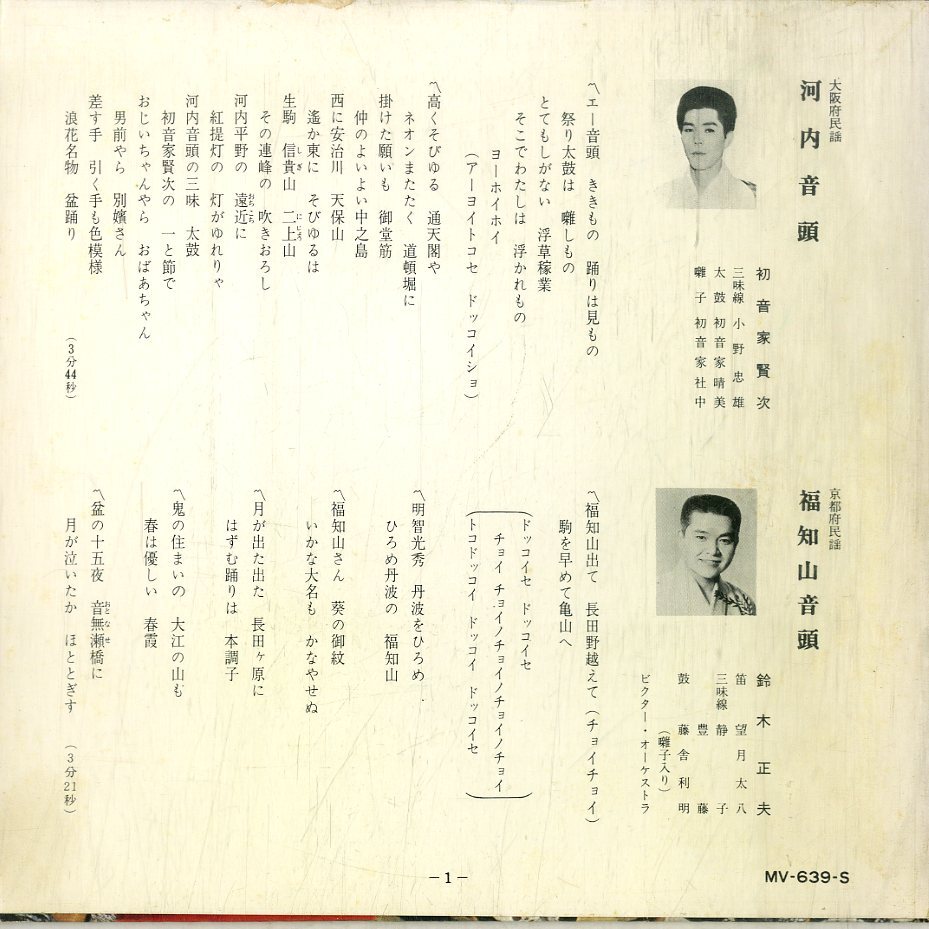 大阪府民謡
河内音頭
初音家賢次
三味線 小野忠雄
太鼓 初音家晴美
囃子 初音家社中
〽エー音頭 ききもの 踊りは見もの
祭り太鼓は 囃しもの
とてもしがない 浮草稼業
そこでわたしは 浮かれもの
ヨーホイホイ
(アーヨイトコセ ドッコイショ)
〽高くそびゆる 通天閣や
ネオンまたたく 道頓堀に
掛けた願いも 御堂筋
仲のよいよい中之島
西に安治川 天保山
遙か東に そびゆるは
生駒 信貴山 二上山
その連峰の 吹きおろし
河内平野の 遠近に
紅提灯の 灯がゆれりゃ
河内音頭の三味 太鼓
初音家賢次の 一と節で
おじいちゃんやら おばあちゃん
男前やら 別嬪さん
差す手 引く手も色模様
浪花名物 盆踊り
(3分44秒)
京都府民謡
福知山音頭
鈴木正夫
笛 望月太八
三味線 静子
豊藤
鼓 藤舎利明
(囃子入り)
ビクター・オーケストラ
〽福知山出て 長田野越えて(チョイチョイ)
駒を早めて亀山へ
ドッコイセ ドッコイセ
チョイ チョイノチョイノチョイノチョイ
トコドッコイ ドッコイ ドッコイセ
〽明智光秀 丹波をひろめ
ひろめ丹波の 福知山
〽福知山さん 葵の御紋
いかな大名も かなやせぬ
〽月が出た出た 長田ヶ原に
はずむ踊りは 本調子
〽鬼の住まいの 大江の山も
春は優しい 春霞
〽盆の十五夜 音無瀬橋に
月が泣いたか ほととぎす
(3分21秒)
－1－
MV-639-S